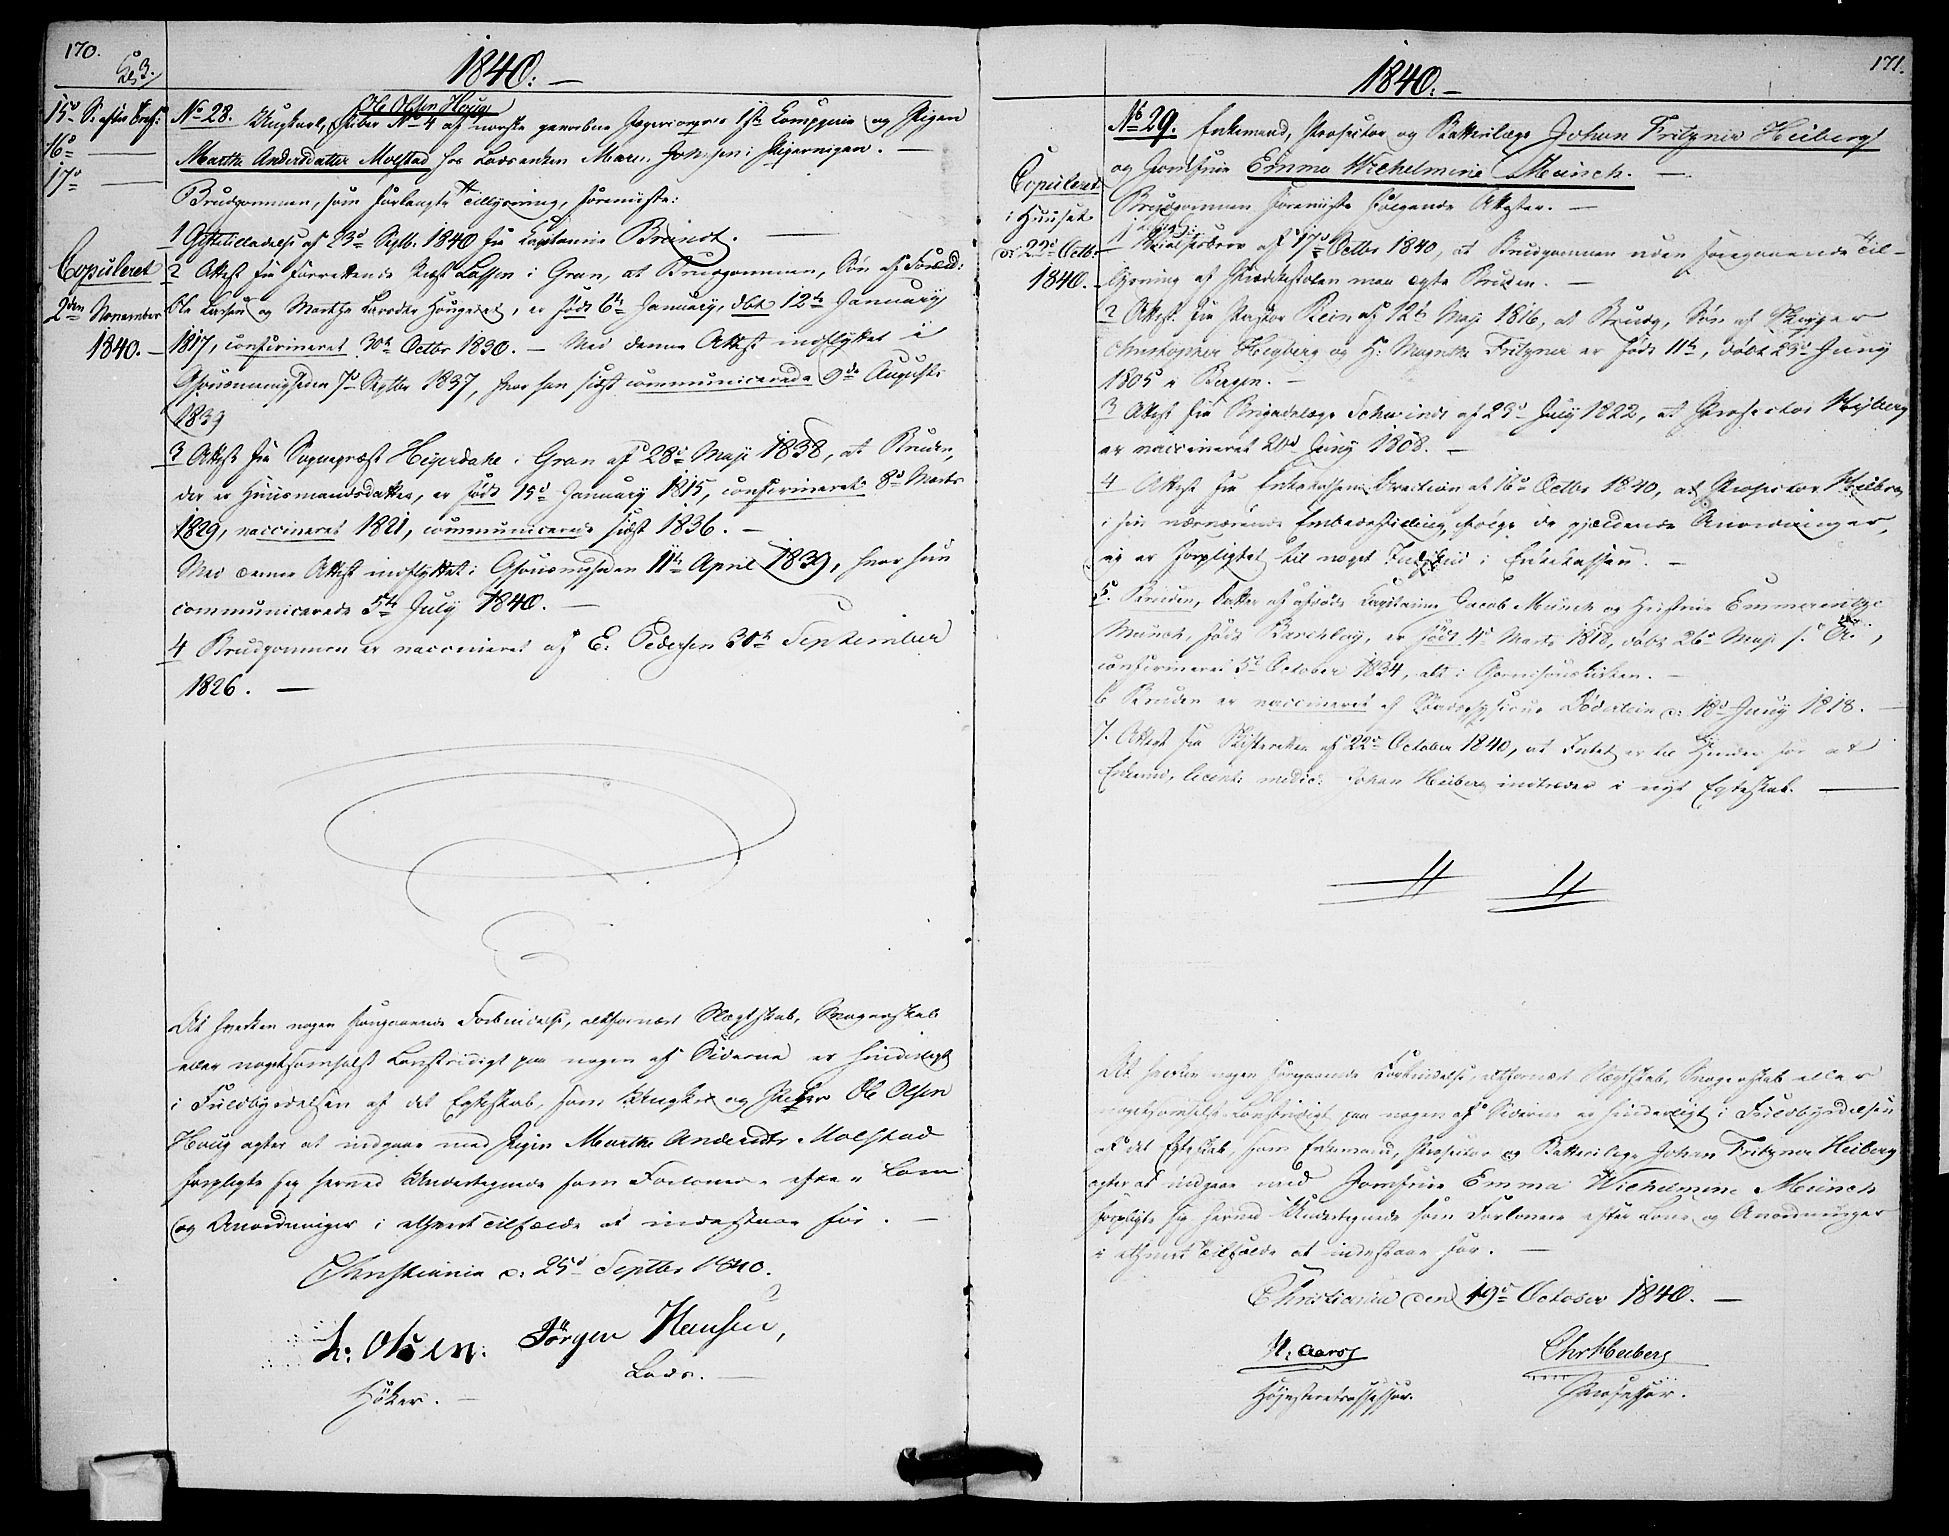 170.
1840. —
15de S. efter Tref:
16de —
17de —
Copuleret
2den November
1840. —
Ole Olsen Houg
No 28. Ungkarl, Jæger No 4 af norske gevorbne Jægercorpses 1ste Compagnie og Pigen
Marthe Andersdatter Molstad hos Lodsenken Maren Johnsen i Pigernigen. —
Brudgommen, som forlangte Tillysning, foreviiste:
1 Giftetilladelse af 23de Septb: 1840 fra Kaptainie Brandt. —
2 Attest fra forrettende Præst Lassen i Gran, at Brudgommen, Søn af Foræld:
Ole Larsen og Marthe Larsdtr Hougeiet, er født 6te January, døbt 12te January
1817, confirmeret 30te Octbr 1830. — Med denne Attest indflyttet i
Garnisonsmenigheden 7de Septbr 1837, hvor han sidst communicerede 9de Augusti
1839
3 Attest fra Sognepræst Heyerdahl i Gran af 28de Maji 1838, at Bruden,
der er Huusmandsdatter, er født 15de January 1815, confirmeret 8de Marts
1829, vaccineret 1821, communicerede sidst 1836. —
Med denne Attest indflyttet i Garnisonsmgheden 11te April 1839, hvor hun
communicerede 5te July 1840. —
4 Brudgommen er vaccineret af E. Pedersen 30te September
1826. —
At hverken nogen foregaaende Forbindelse, altfornært Slægtskab, Svogerskab
eller nogetsomhelst Lovstridigt paa nogen af Siderne er hinderligt
i Fuldbyrdelsen af det Egteskab, som Ungkarl og Jæger Ole Olsen
Houg agter at indgaae med Pigen Marthe Andersdtr Molstad
forpligte sig herved Undertegnede som Forlovere efter Love
og Anordninger i ethvert Tilfælde at indestaae for. —
Christiania d. 25de Septbr 1840.
L. Olsen. Jörgen Hansen,
Höker. — Lods. —
1840. —
171.
Copuleret
i Huuset
d: 22de Octbr
1840. —
No 29. Enkemand, Prosector og Batterilæge Johan Fritzner Heiberg
og Jomfrue Emma Wilhelmine Munch. —
Brudgommen foreviiste følgende Attester. —
1 Bevillingsbrev af 17de Octbr 1840, at Brudgommen uden foregaaende Til-
lysning af Prædikestolen maa egte Bruden. —
2 Attest fra Pastor Rein af 12te Maji 1816, at Brudg, Søn af
Christopher Heyberg og H: Magrethe Fritzner er født 11te, døbt 23de Juny
1805 i Bergen. —
3 Attest fra Brigadelæge Schwindt af 23de July 1822, at Prosector Heyberg
er vaccineret 20de Juny 1808. —
4 Attest fra Enkekassens Direction af 16de Octbr 1840, at Prosector Heiberg
i sin nærværende Embedsstilling, ifølge de gjældende Anordninger,
ei er forpligtet til noget Indskud i Enkekassen. —
5. Bruden, Datter af afdøde Kapitaine Jacob Munch og Hustrue Emmerentze
Munch, født Barclay, er født 4de Marts 1818, døbt 26de Maji s. Aar,
confirmeret 5te October 1834, alt i Garnisonskirken. —
6 Bruden er vaccineret af Stadsphysicus Döderlein d. 18de Juny 1818. —
7. Attest fra Skifteretten af 22de October 1840, at Intet er til Hinder for at
Enkemd, licent: medic: Johan Heiberg indtræder i nyt Egteskab. —
At hverken nogen foregaaende Forbindelse, altfornært Slægtskab, Svogerskab eller
nogetsomhelst Lovstridigt paa nogen af Siderne er hinderligt i Fuldbyrdelsen
af det Egteskab, som Enkemand, Prosector og Batterilæge Johan Fritzner Heiberg
agter at indgaae med Jomfrue Emma Wilhelmine Munch
forpligte sig herved Undertegnede som Forlovere efter Love og Anordninger
i ethvert Tilfælde at indestaae for. —
Christiania den 19de October 1840. —
Chr Heiberg
Høiesteretsassessor. Professor.